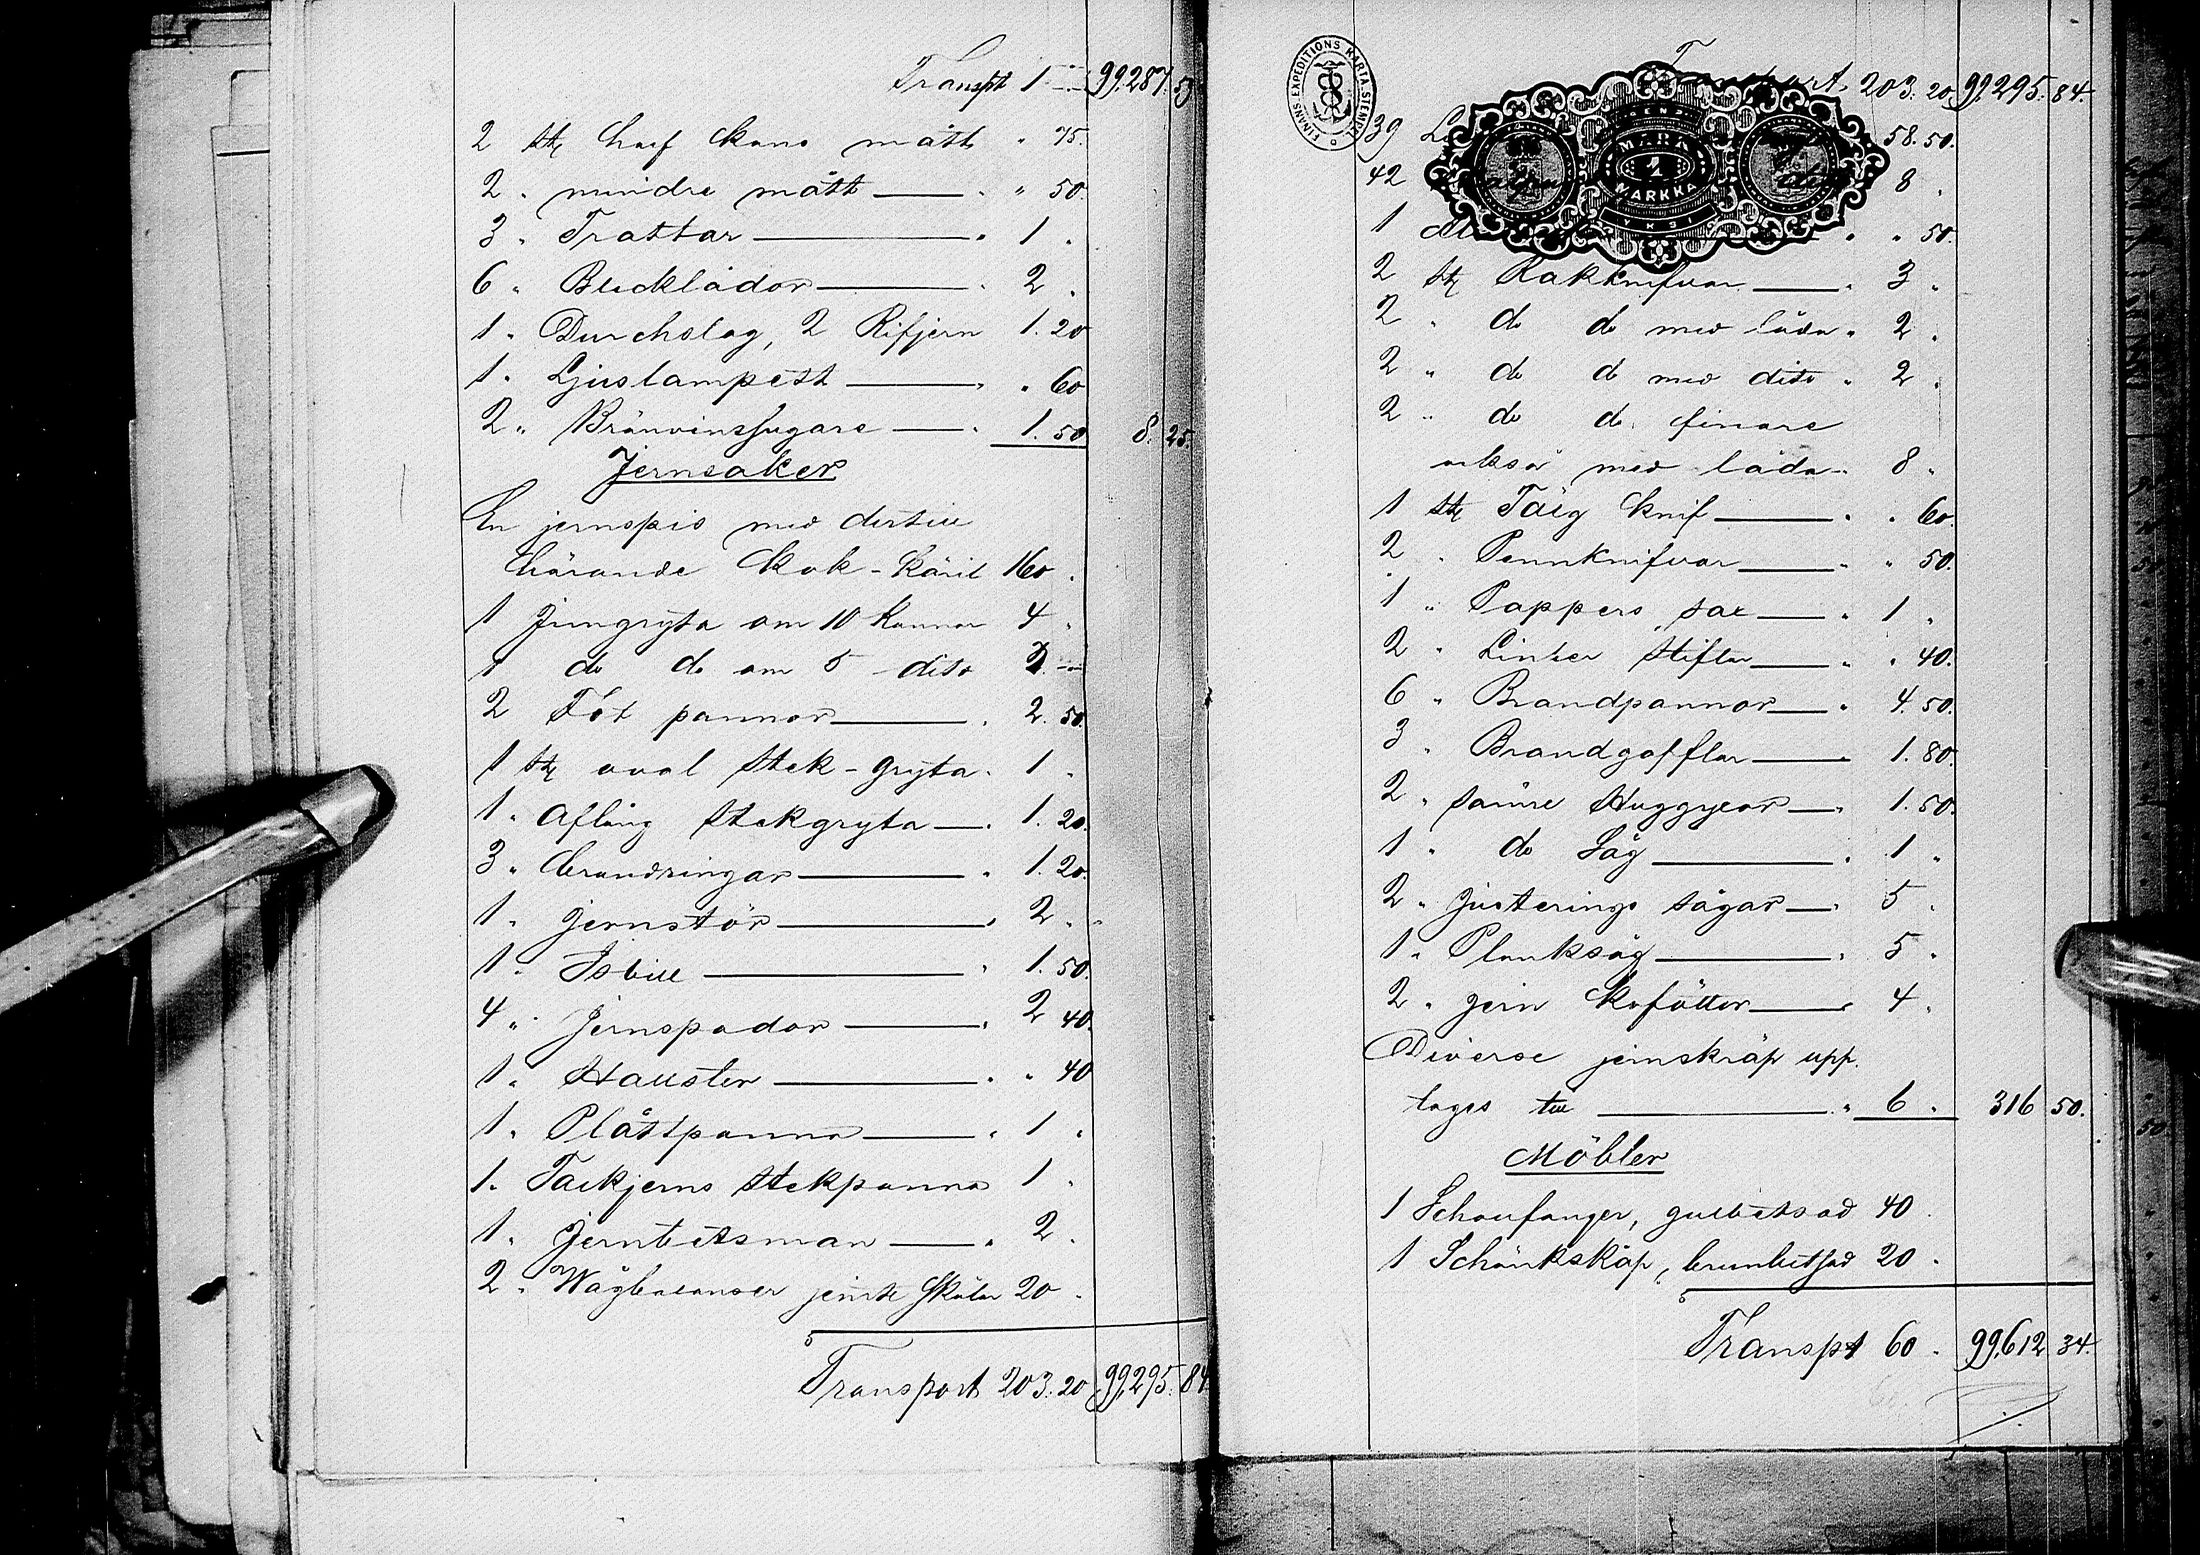 Transpt 1 — 99,287. 59
2 st half kans mått " 75.
2 " mindre mått " 50.
3 " Trattar " 1 "
6 " Blecklådor " 2 "
1 " Durchslag, 2 Rifjern 1. 20
1 " Ljuslampett " " 60
2 " Bränvinsfugare " 1. 50 8. 25.
Jernsaker
En jernspis med dertill
hörande kok-käril 160 "
1 Jerngryta om 10 kannor 4 "
1 do do om 5 dito 2. —
2 Fot pannor " 2. 50.
1 st oval stek-gryta " 1 "
1 " aflång stekgryta " 1. 20.
3 " brandringar " 1. 20.
1 " jernstör " 2 "
1 " Isbill " 1. 50.
4 " Jernspador " 2 40.
1 " Hallster " " 40
1 " Plåttpanna " 1 "
1 " Tackjerns stekpanna 1 "
1 " Jernbetsman " 2 "
2 " Wågbalanser jemte skålar 20 "
Transport 203. 20 99,295. 84
FINANS EXPEDITIONS KARTA STEMPEL
Transport 203. 20 99,295. 84.
39 58. 50.
MARK
1
MARKKA
YKSI
42 8 "
1 " " 50.
2 st Rakknifvar " 3 "
2 " do do med låda " 2 "
2 " do do med dito " 2 "
2 " do do finare
också med låda " 8 "
1 st Tälg knif " " 60.
2 " Pennknifvar " " 50.
1 " Pappers sax " 1 "
2 " stiftar " " 40.
6 " Brandpannor " 4. 50.
3 " Brandgafflar 1. 80.
2 " sämre Huggyxor " 1. 50.
1 " do Såg " 1 "
2 " Justerings sågar " 5 "
1 " Planksåg " 5 "
2 " jern kofötter 4 "
Diverse jernskräp upp
tages till " 6 " 316 50.
Möbler
1 Schaufanger, gulbetsad 40 "
1 Schänkskåp, brunbetsad 20 "
Transpt 60 " 99,612 34.